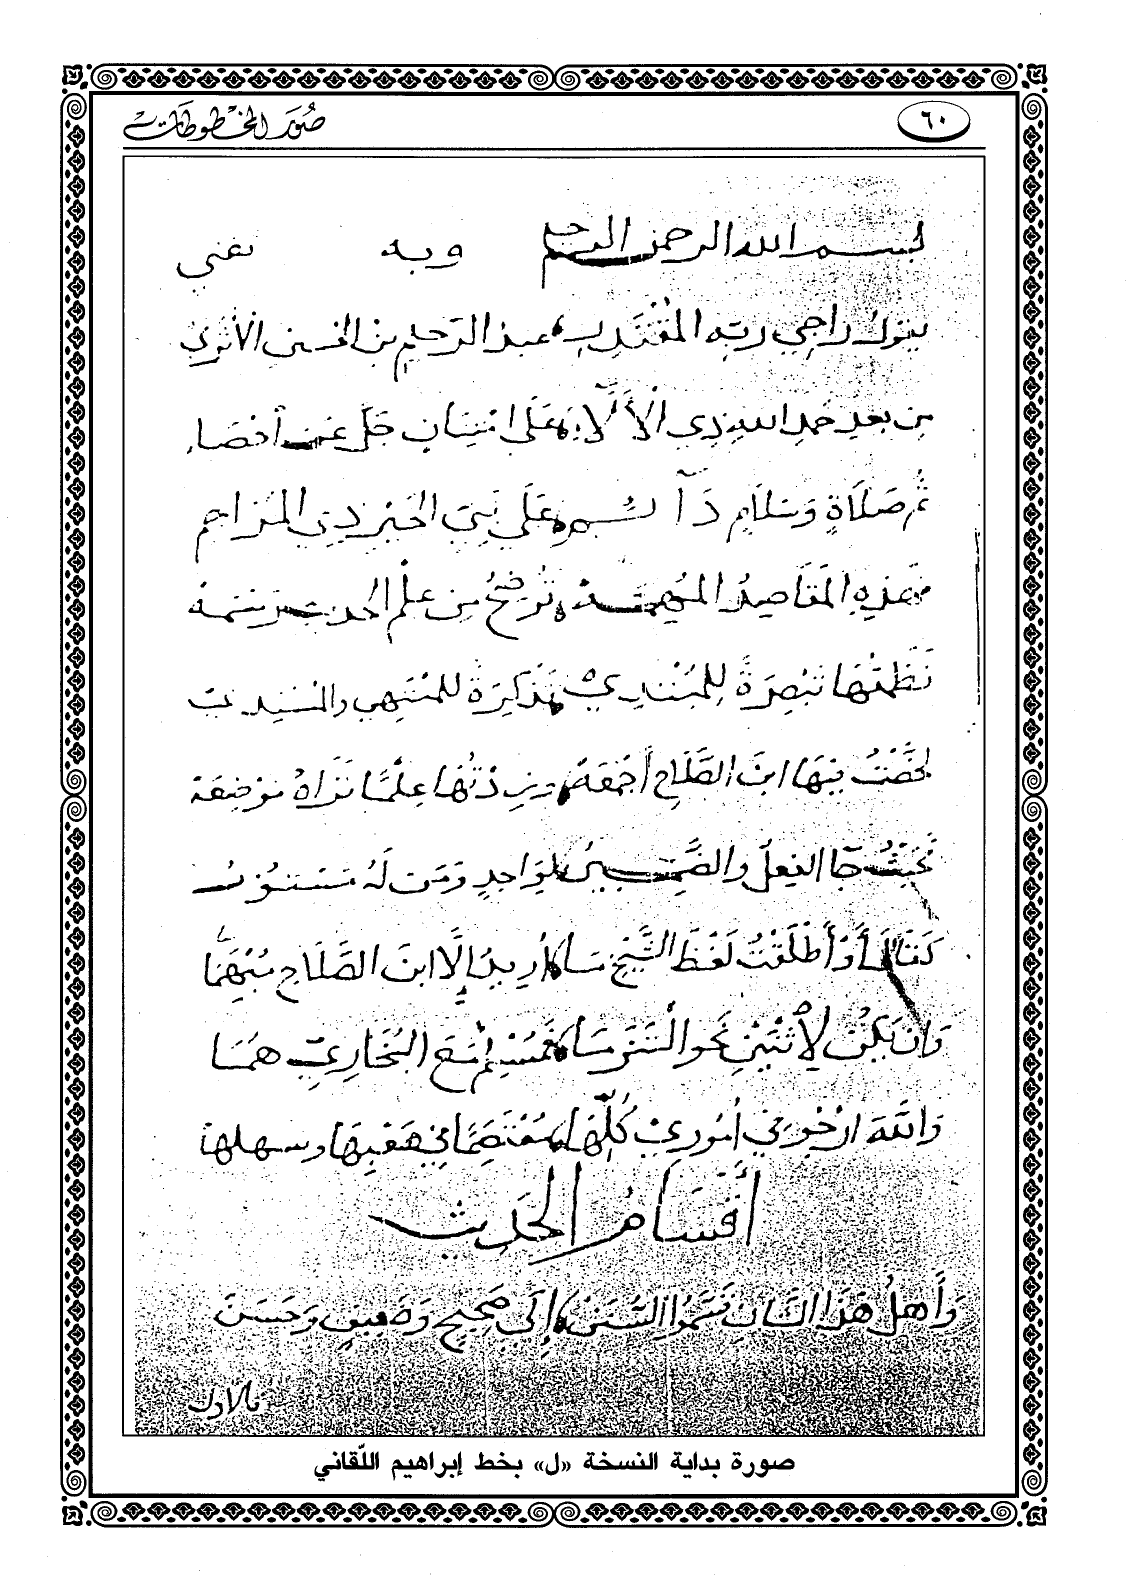 ٦٠
صُوَر المخطوطات
بسم الله الرحمن الرحيم وبه ثقتي
يقول راجي ربه المقتدر عبد الرحيم بن الحسين الأثري
من بعد حمد الله ذي الآلاء على امتنان جل عن إحصاء
ثم صلاة وسلام دائم على نبي الخير ذي المراحم
فهذه المقاصد المهمة توضح من علم الحديث رسمه
نظمتها تبصرة للمبتدي تذكرة للمنتهي والمسند
لخصت فيها ابن الصلاح أجمعه وزدتها علما تراه موضعه
فحيث جا الفعل والضمير لواحد ومن له مستور
كقال أو أطلقت لفظ الشيخ ما أريد إلا ابن الصلاح مبهما
وإن يكن لاثنين نحو التزما فمسلم مع البخاري هما
والله أرجو في أموري كلها معتصما في صعبها وسهلها
أقسام الحديث
وأهل هذا الشان قسموا السنن إلى صحيح وضعيف وحسن
فالأول
صورة بداية النسخة «ل» بخط إبراهيم اللّقاني